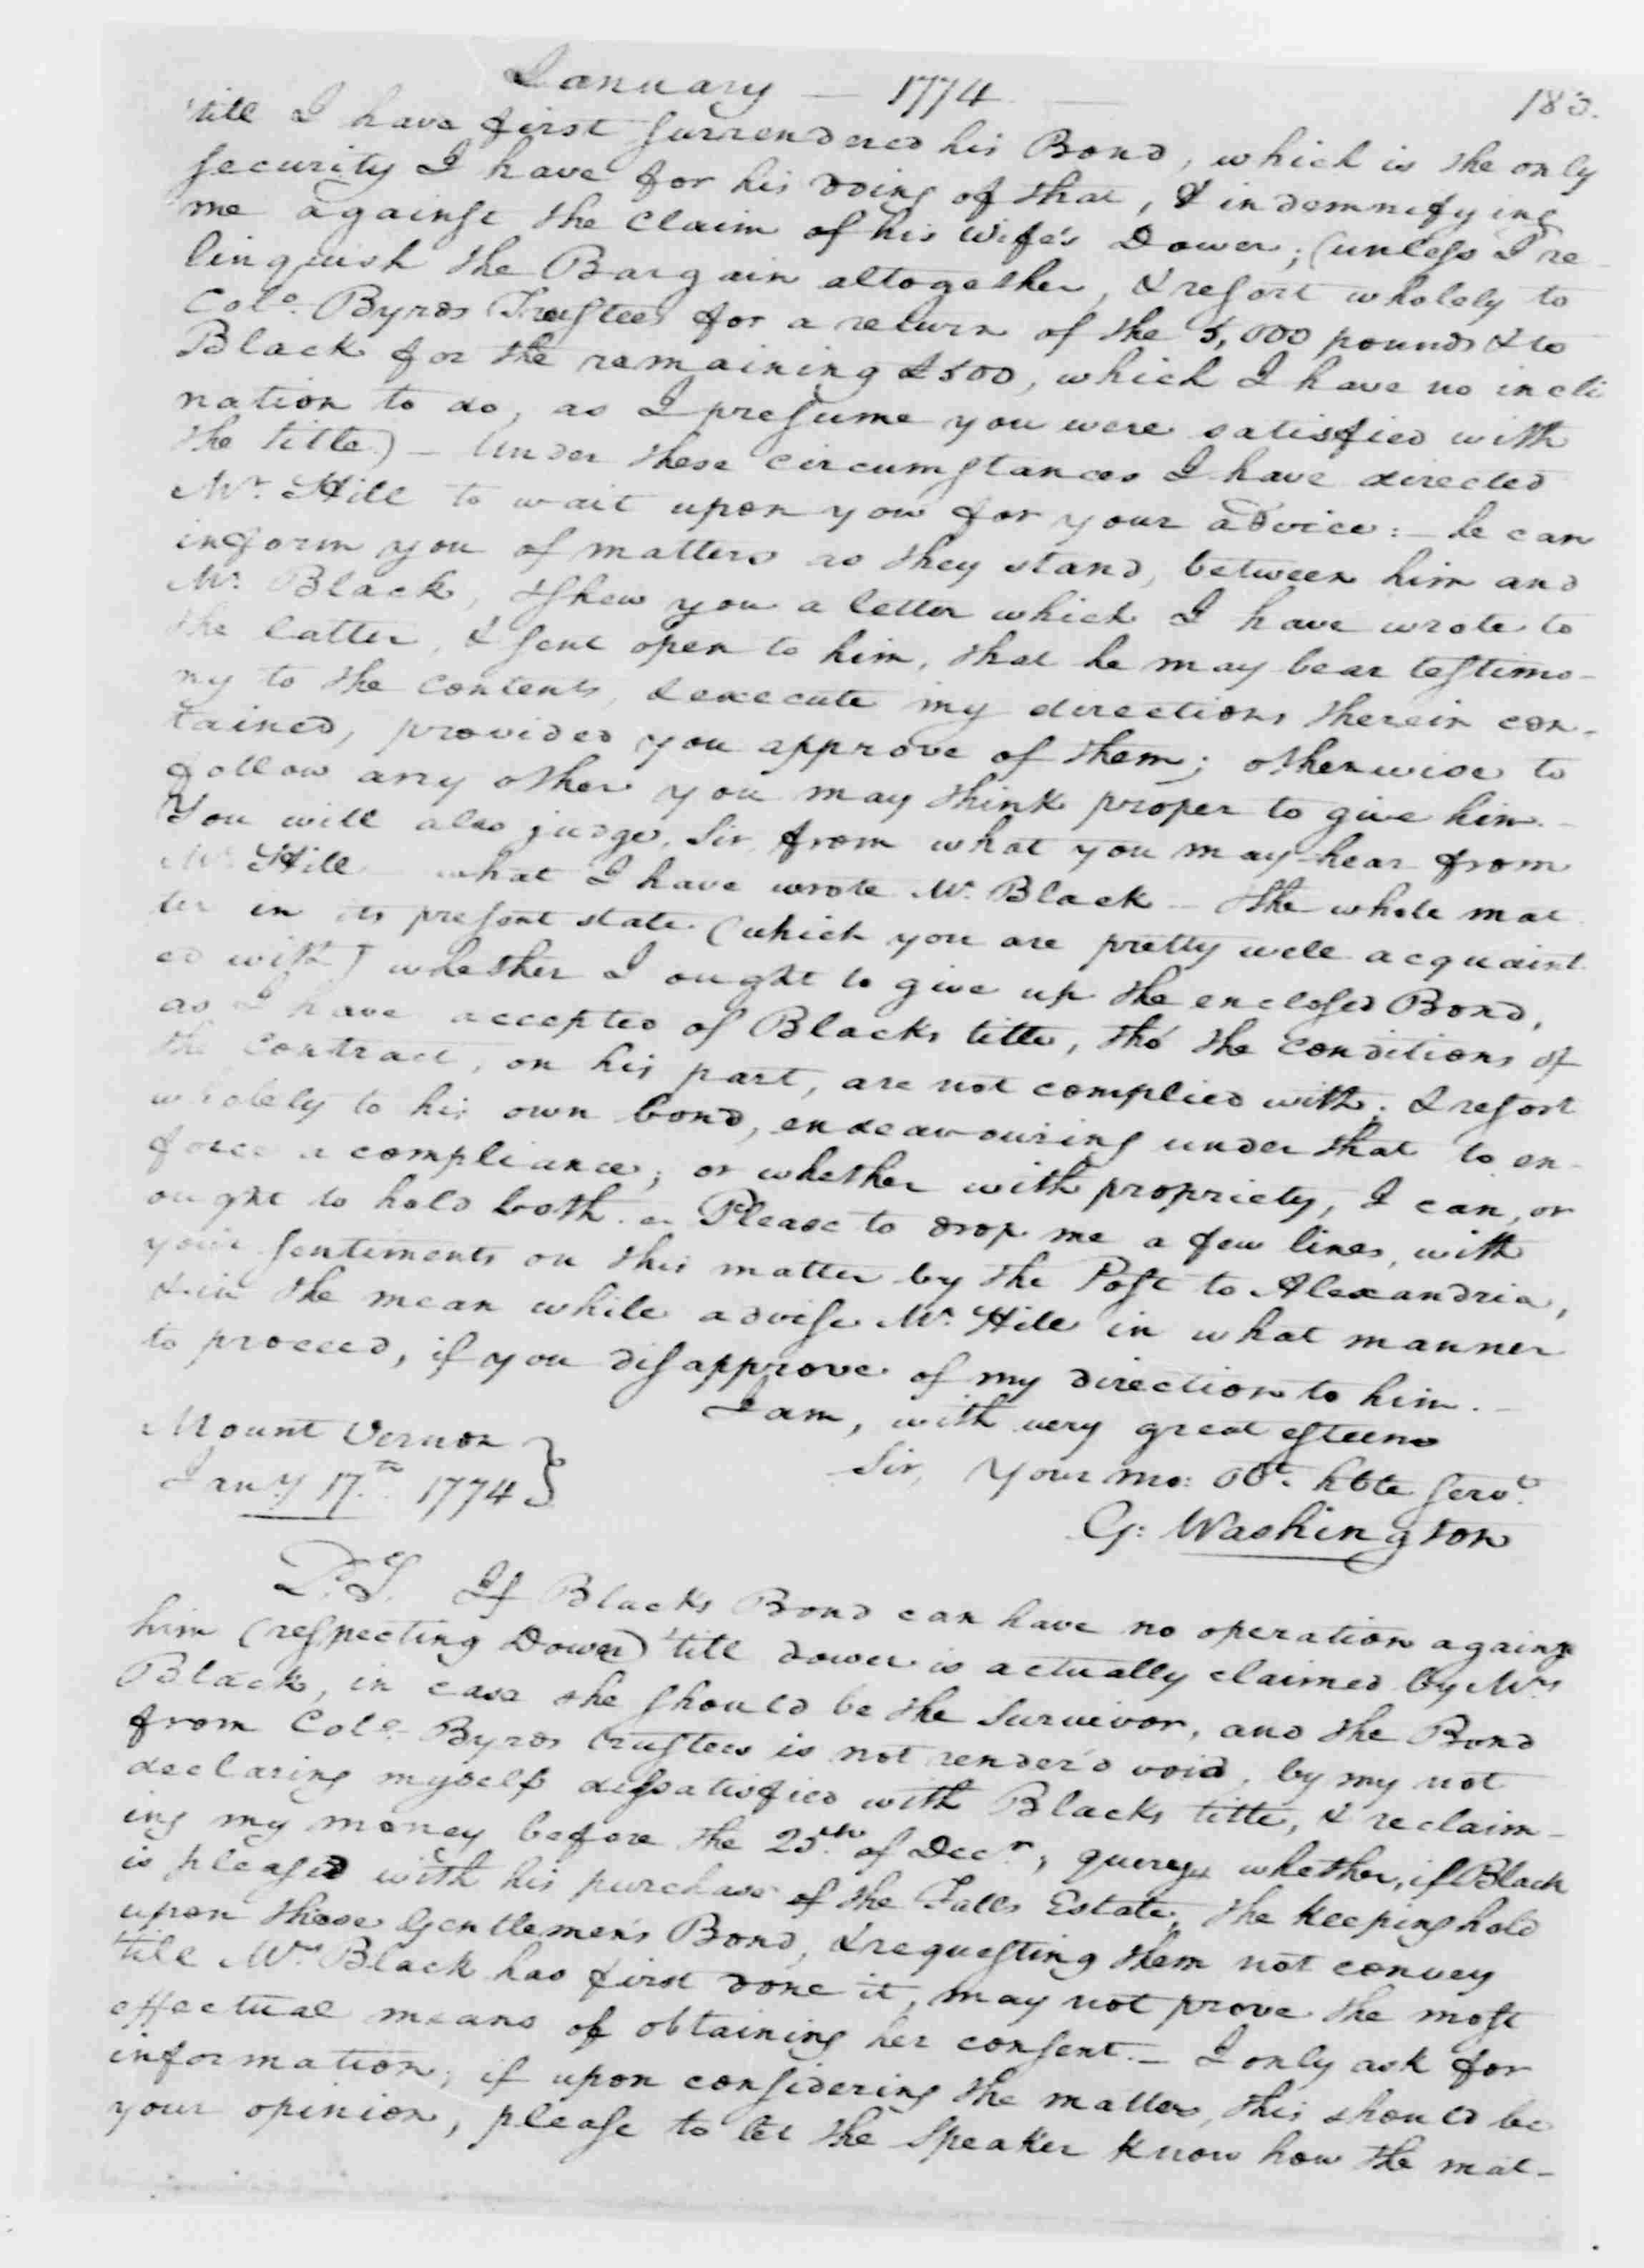 January — 1774. —
183.
'till I have first surrendered his Bond, which is the only
security I have for his doing of that, & indemnifying
me against the Claim of his Wife's Dower; (unless I re-
linquish the Bargain altogether, & resort wholely to
Colo. Byrds Trustees for a return of the 5,000 pounds & to
Black for the remaining £500, which I have no incli
nation to do, as I presume you were satisfied with
the title) — Under these circumstances I have directed
Mr. Hill to wait upon you for your advice: — he can
inform you of matters as they stand, between him and
Mr. Black, & shew you a letter which I have wrote to
the latter, & sent open to him, that he may bear testimo-
ny to the contents, & execute my directions therein con-
tained, provided you approve of them; otherwise to
follow any other you may think proper to give him. —
You will also judge, Sir, from what you may hear from
Mr. Hill — what I have wrote Mr. Black — & the whole mat
ter in its present state (which you are pretty well acquaint
ed with) whether I ought to give up the enclosed Bond,
as I have accepted of Blacks title, tho' the conditions of
the contract, on his part, are not complied with; & resort
wholely to his own bond, endeavouring under that to en-
force a compliance; or whether with propriety, I can, or
ought to hold both. — Please to drop me a few lines, with
your sentiments on this matter by the Post to Alexandria,
& in the mean while advise Mr. Hill in what manner
to proceed, if you disapprove of my direction to him. —
I am, with very great esteem
Sir, Your mo: Obt. hble Servt.
G: Washington
Mount Vernon
Jany 17th. 1774
P.S. If Blacks Bond can have no operation against
him (respecting Dower) 'till dower is actually claimed by Mrs
Black, in case she should be the Survivor, and the Bond
from Colo. Byrds Trustees is not render'd void, by my not
declaring myself dissatisfied with Blacks title, & reclaim-
ing my money before the 25th. of Decr., query whether, if Black
is pleased with his purchase of the Falls Estate, the keeping hold
upon those Gentlemen's Bond, & requesting them not convey
till Mrs. Black has first done it, may not prove the most
effectual means of obtaining her consent. — I only ask for
information; if upon considering the matter, this should be
your opinion, please to let the Speaker know how the mat-